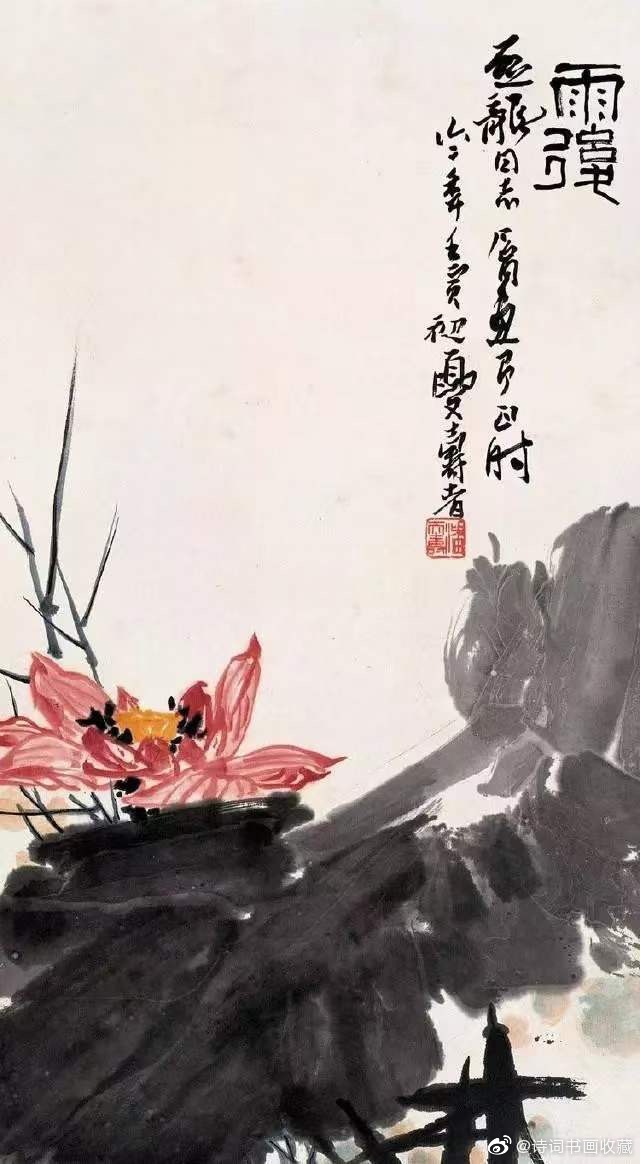 雨
龍同志屬畫即正時
六二年壬寅初夏壽者
潘天壽
@诗词书画收藏